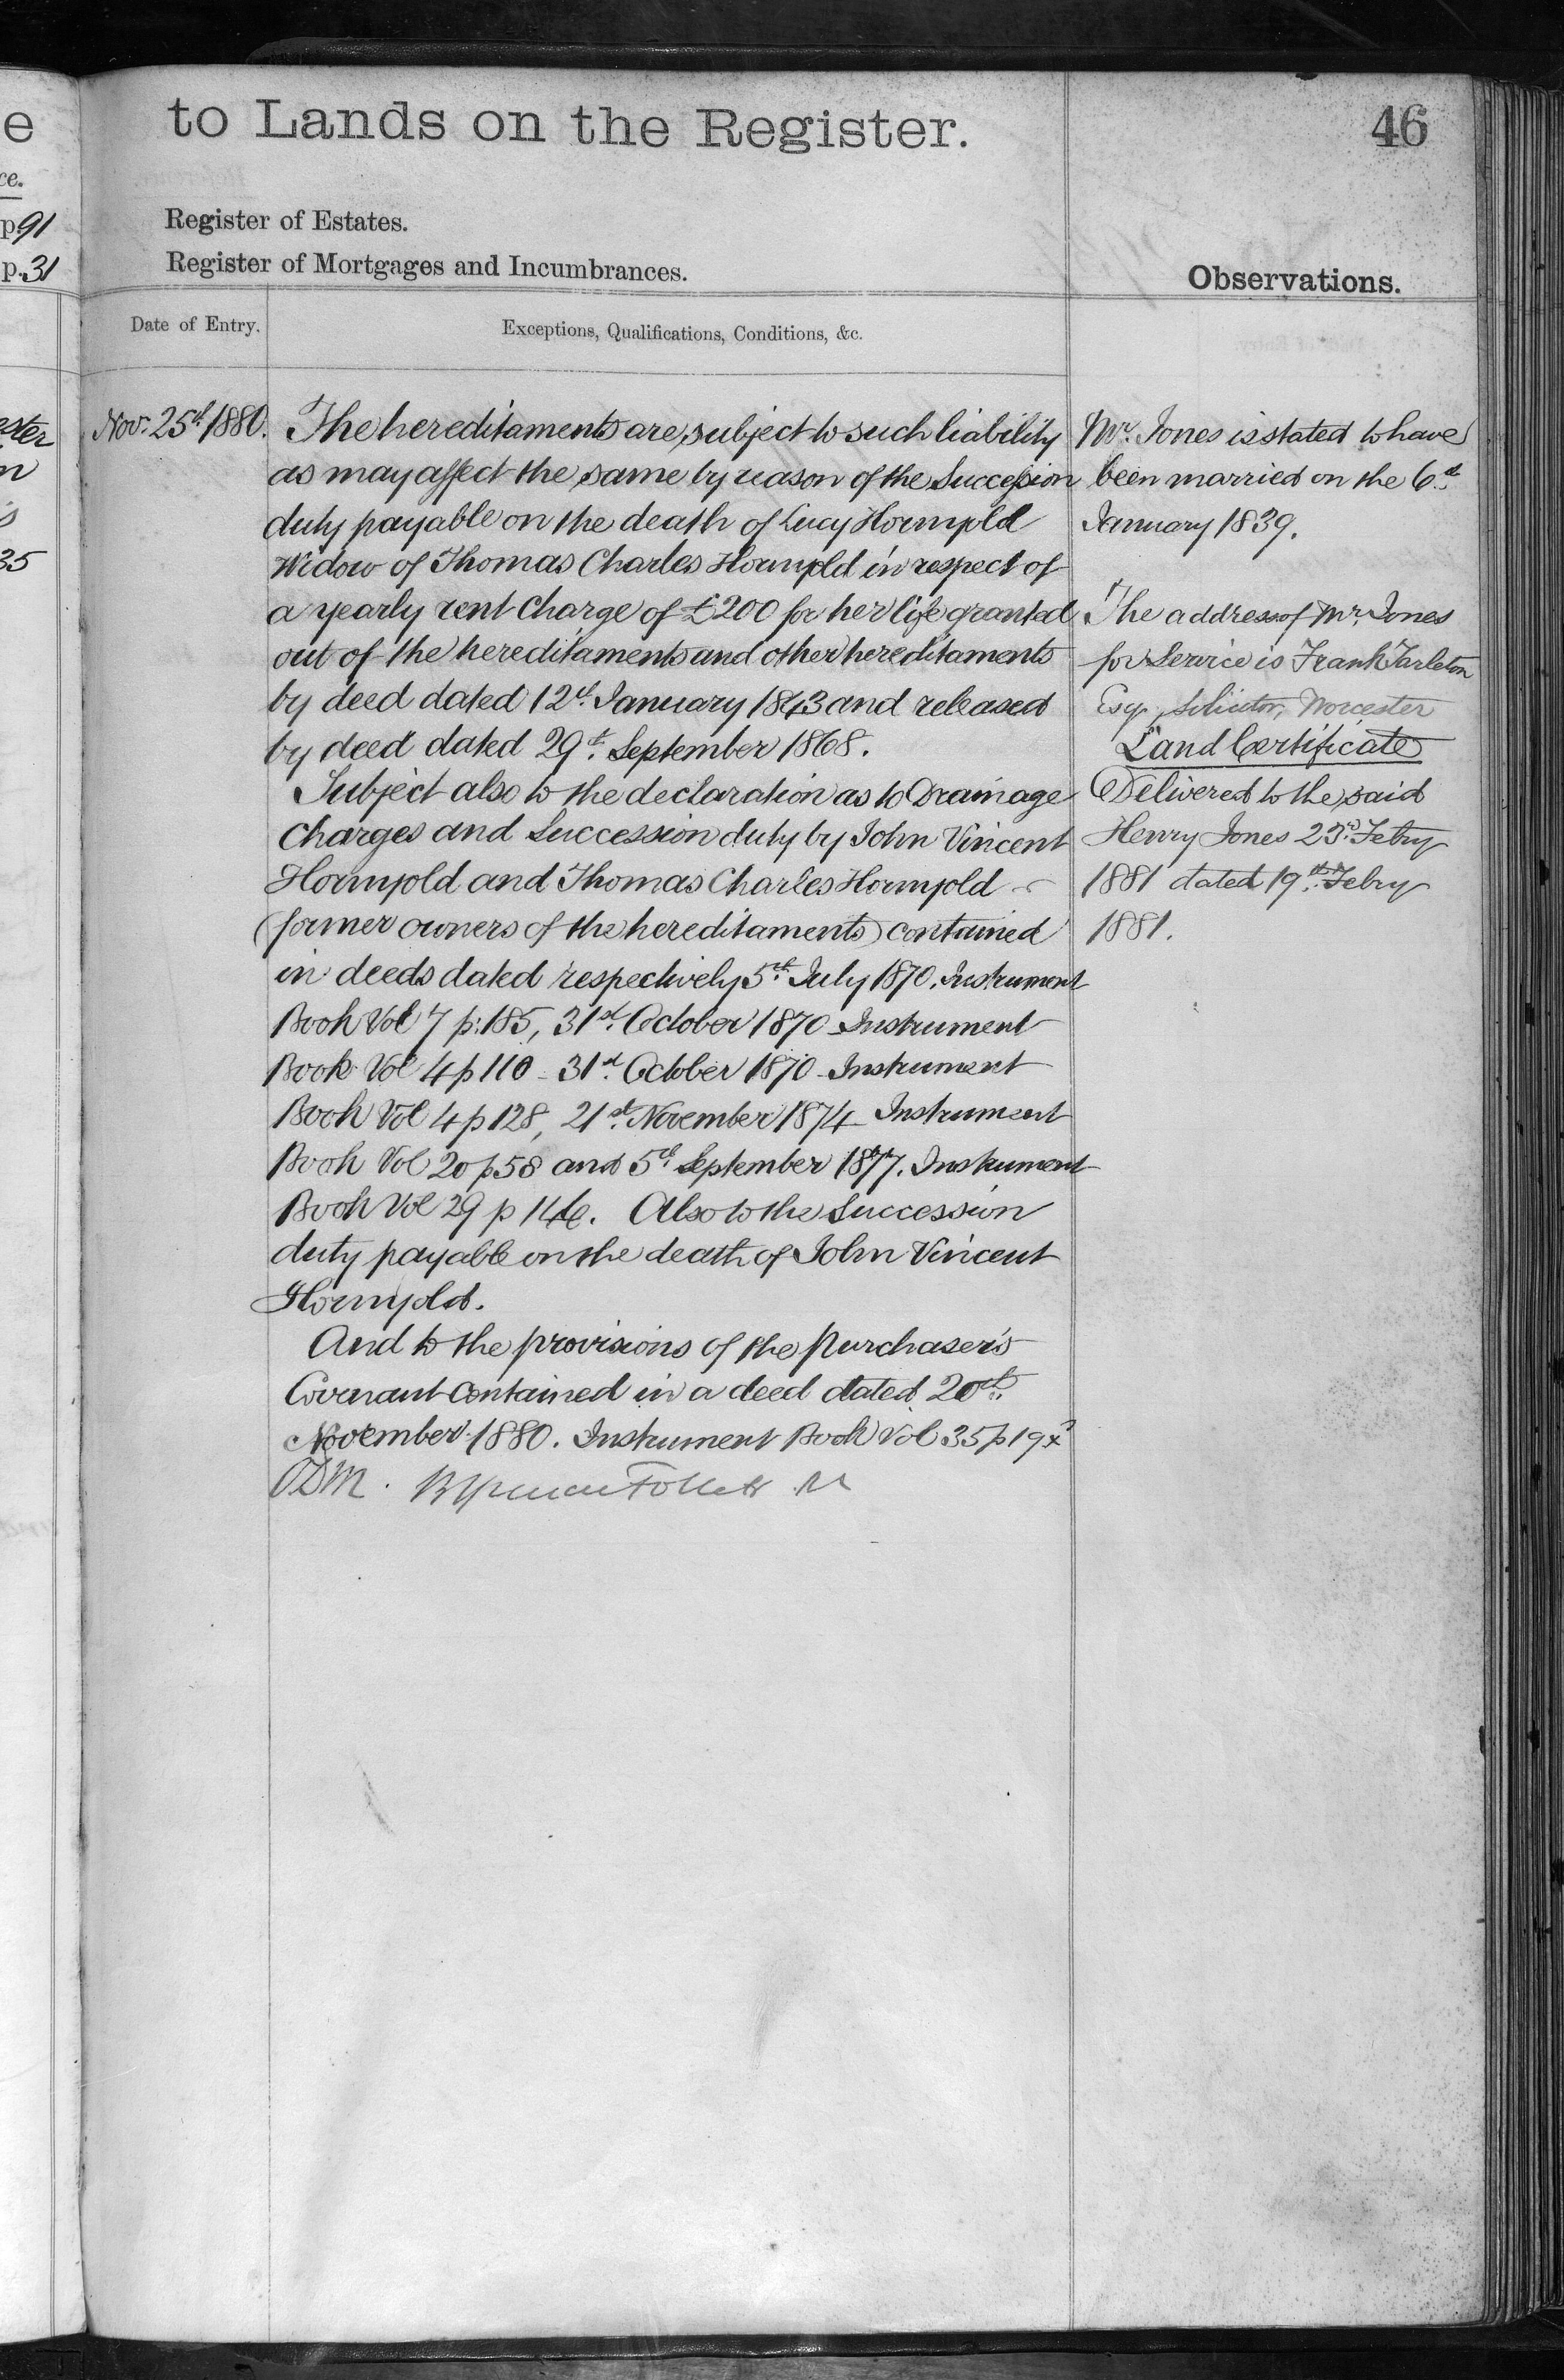 to Lands on the Register.
46
e
ce.
p.91
p.31
Register of Estates.
Register of Mortgages and Incumbrances.
Observations.
Date of Entry.
Exceptions, Qualifications, Conditions, &c.
ester
n
s
35
Nov. 25th 1880.
The hereditaments are subject to such liability
as may affect the same by reason of the Succession
duty payable on the death of Lucy Hornyold
Widow of Thomas Charles Hornyold in respect of
a yearly rent charge of £200 for her life granted
out of the hereditaments and other hereditaments
by deed dated 12th January 1843 and released
by deed dated 29th September 1868.
Subject also to the declaration as to Drainage
Charges and Succession duty by John Vincent
Hornyold and Thomas Charles Hornyold
(former owners of the hereditaments) contained
in deeds dated respectively 5th July 1870. Instrument
Book Vol 7 p: 185, 31st October 1870 Instrument
Book Vol 4 p 110 - 31st October 1870 - Instrument
Book Vol 4 p 128, 21st November 1874 Instrument
Book Vol 20 p 58 and 5th September 1877. Instrument
Book Vol 29 p 146. Also to the Succession
duty payable on the death of John Vincent
Hornyold.
And to the provisions of the purchaser's
Covenant contained in a deed dated 20th
November 1880. Instrument Book Vol 35 p 19
Mr. Jones is stated to have
been married on the 6th
January 1839.
The address of Mr. Jones
for Service is Frank Tarleton
Esq., Solicitor, Worcester
Land Certificate
Delivered to the said
Henry Jones 23rd Febry
1881 dated 19th Febry
1881.